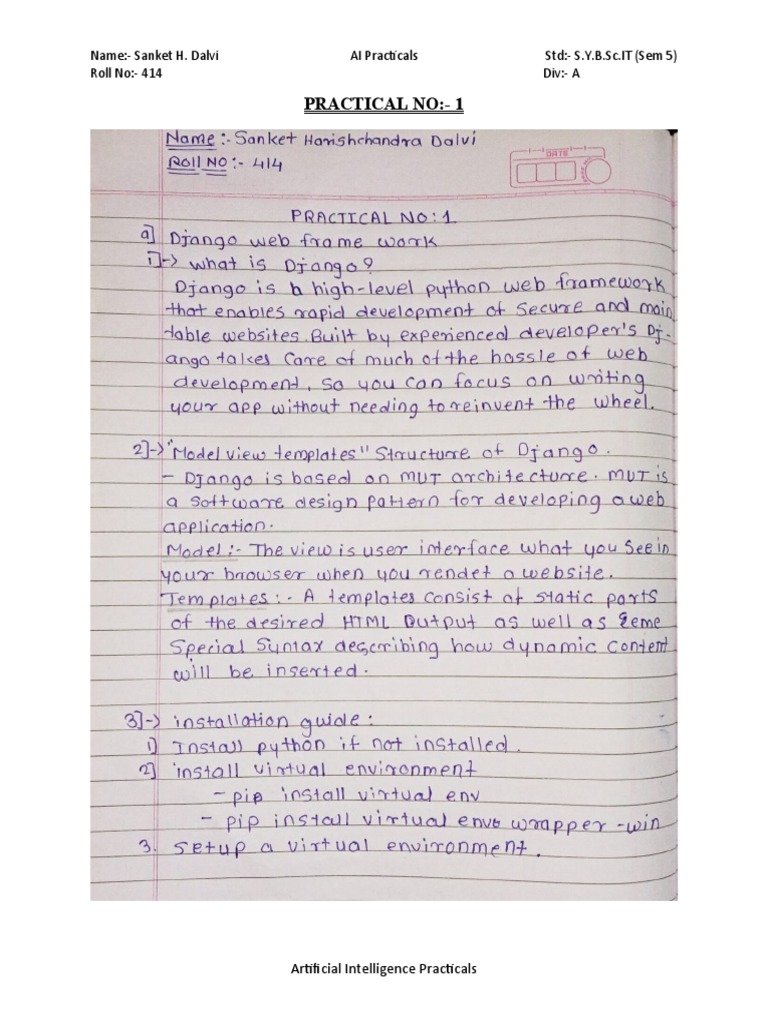 Name:- Sanket H. Dalvi AI Practicals Std:- S.Y.B.Sc.IT (Sem 5)
Roll No:- 414 Div:- A
PRACTICAL NO:- 1
Name :- Sanket Harishchandra Dalvi
Roll NO :- 414
DATE
PRACTICAL NO: 1
a] Django web frame work
i]-> what is Django?
Django is a high-level python web framework
that enables rapid development of secure and main
table websites. Built by experienced developer's Dj-
ango takes care of much of the hassle of web
development, so you can focus on writing
your app without needing to reinvent the wheel.
2]-> "Model view templates" Structure of Django.
- Django is based on MVT architecture. MVT is
a software design pattern for developing a web
application.
Model :- The view is user interface what you see in
your browser when you rendet a website.
Templates :- A templates consist of static parts
of the desired HTML Output as well as
Special Syntax describing how dynamic content
will be inserted.
3]-> installation guide :
1] Install python if not installed.
2] install virtual environment
- pip install virtual env
- pip install virtual env wrapper -win
3. Setup a virtual environment.
Artificial Intelligence Practicals